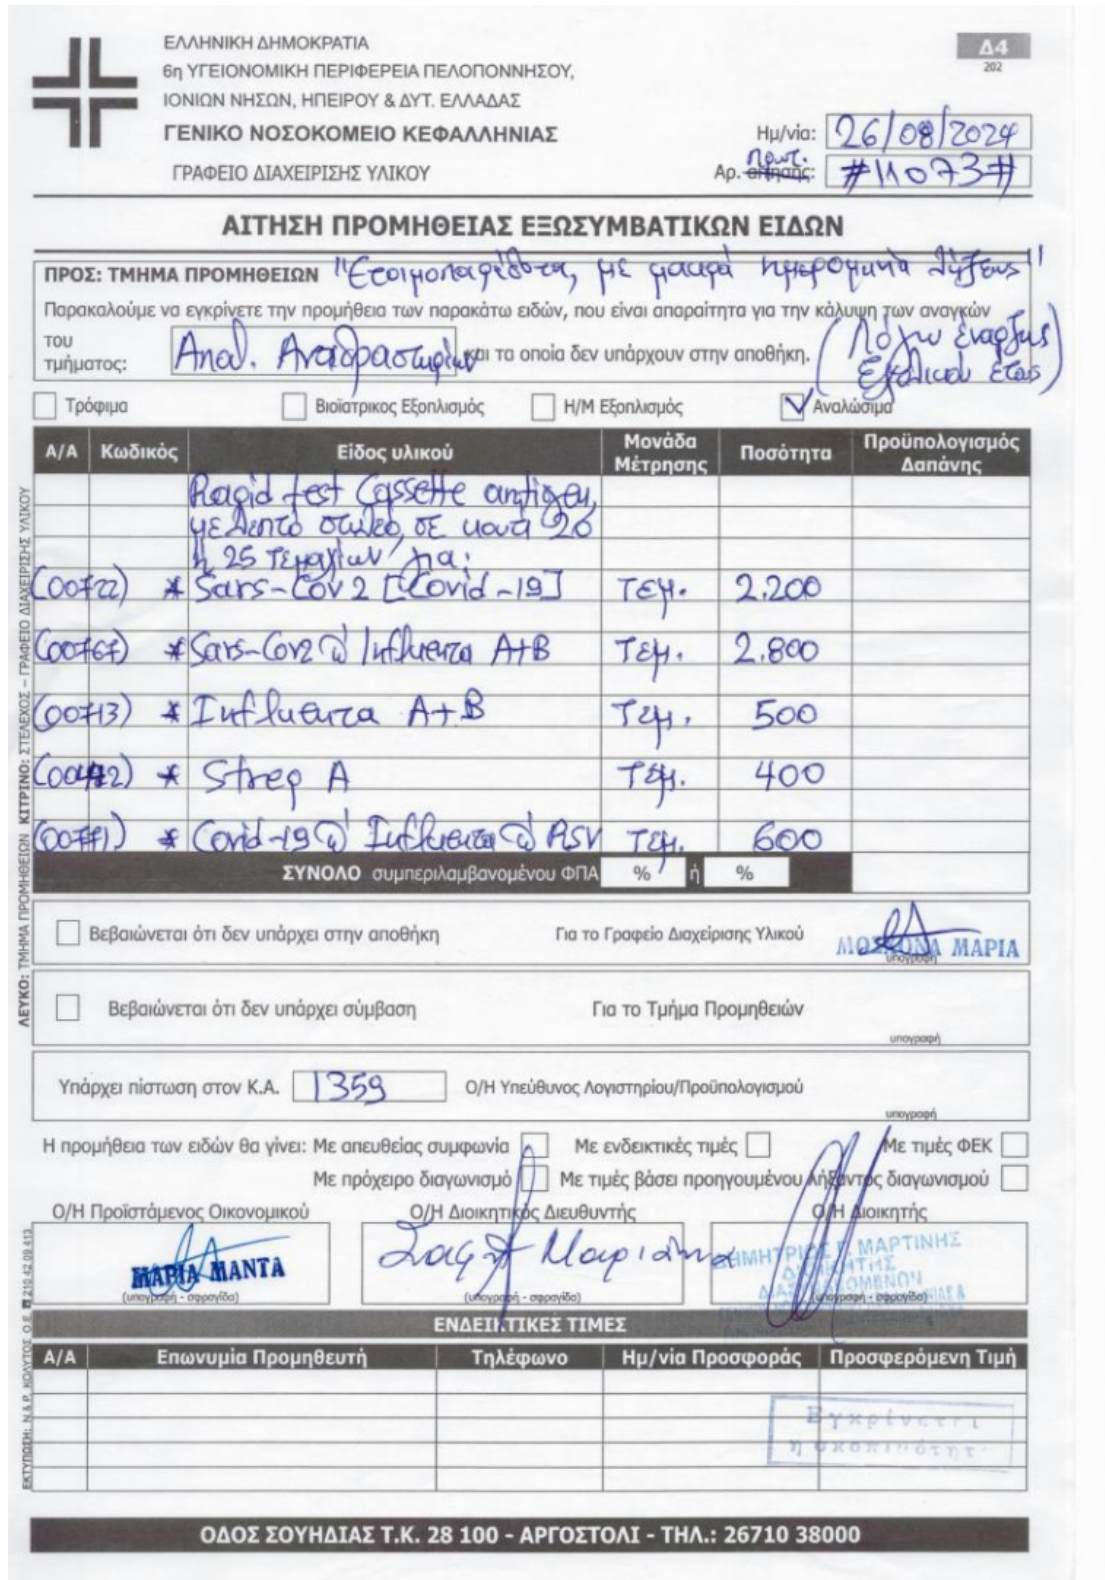 ΕΛΛΗΝΙΚΗ ΔΗΜΟΚΡΑΤΙΑ
6η ΥΓΕΙΟΝΟΜΙΚΗ ΠΕΡΙΦΕΡΕΙΑ ΠΕΛΟΠΟΝΝΗΣΟΥ,
ΙΟΝΙΩΝ ΝΗΣΩΝ, ΗΠΕΙΡΟΥ & ΔΥΤ. ΕΛΛΑΔΑΣ
ΓΕΝΙΚΟ ΝΟΣΟΚΟΜΕΙΟ ΚΕΦΑΛΛΗΝΙΑΣ
ΓΡΑΦΕΙΟ ΔΙΑΧΕΙΡΙΣΗΣ ΥΛΙΚΟΥ
Δ4
202
Ημ/νία: 26/08/2024
Πρωτ.
Αρ. αίτησης: #11073#
ΑΙΤΗΣΗ ΠΡΟΜΗΘΕΙΑΣ ΕΞΩΣΥΜΒΑΤΙΚΩΝ ΕΙΔΩΝ
ΠΡΟΣ: ΤΜΗΜΑ ΠΡΟΜΗΘΕΙΩΝ "Ετοιμοπαράδοτα, με μακρά ημερομηνία λήξεως"
Παρακαλούμε να εγκρίνετε την προμήθεια των παρακάτω ειδών, που είναι απαραίτητα για την κάλυψη των αναγκών
του τμήματος: Αποθ. Αντιδραστηρίων και τα οποία δεν υπάρχουν στην αποθήκη.
(Λόγω έναρξης
Σχολικού έτους)
Τρόφιμα Βιοϊατρικος Εξοπλισμός Η/Μ Εξοπλισμός Αναλώσιμα
Α/Α Κωδικός Είδος υλικού Μονάδα Μέτρησης Ποσότητα Προϋπολογισμός Δαπάνης
Rapid test Cassette antigen,
με λεπτό στυλεό, σε κουτί 20
ή 25 τεμαχίων για:
(00722) * Sars-Cov 2 [Covid-19] τεμ. 2.200
(00767) * Sars-Cov2 @ Influenza A+B τεμ. 2.800
(00713) * Influenza A+B τεμ. 500
* Strep A τεμ. 400
(00771) * Covid-19 @ Influenza @ RSV τεμ. 600
ΣΥΝΟΛΟ συμπεριλαμβανομένου ΦΠΑ % ή %
Βεβαιώνεται ότι δεν υπάρχει στην αποθήκη Για το Γραφείο Διαχείρισης Υλικού ΜΟΣΧΟΝΑ ΜΑΡΙΑ
υπογραφή
Βεβαιώνεται ότι δεν υπάρχει σύμβαση Για το Τμήμα Προμηθειών
υπογραφή
Υπάρχει πίστωση στον Κ.Α. 1359 Ο/Η Υπεύθυνος Λογιστηρίου/Προϋπολογισμού
υπογραφή
Η προμήθεια των ειδών θα γίνει: Με απευθείας συμφωνία Με ενδεικτικές τιμές Με τιμές ΦΕΚ
Με πρόχειρο διαγωνισμό Με τιμές βάσει προηγουμένου λήξαντος διαγωνισμού
Ο/Η Προϊστάμενος Οικονομικού Ο/Η Διοικητικός Διευθυντής Ο/Η Διοικητής
ΜΑΡΙΑ ΜΑΝΤΑ
ΔΗΜΗΤΡΙΟΣ Γ. ΜΑΡΤΙΝΗΣ
ΔΙΟΙΚΗΤΗΣ
ΔΙΑΣΥΝΔΕΟΜΕΝΩΝ
(υπογραφή - σφραγίδα) (υπογραφή - σφραγίδα) (υπογραφή - σφραγίδα)
ΕΝΔΕΙΚΤΙΚΕΣ ΤΙΜΕΣ
Α/Α Επωνυμία Προμηθευτή Τηλέφωνο Ημ/νία Προσφοράς Προσφερόμενη Τιμή
Εγκρίνεται
η σκοπιμότητα
ΟΔΟΣ ΣΟΥΗΔΙΑΣ Τ.Κ. 28 100 - ΑΡΓΟΣΤΟΛΙ - ΤΗΛ.: 26710 38000
ΛΕΥΚΟ: ΤΜΗΜΑ ΠΡΟΜΗΘΕΙΩΝ ΚΙΤΡΙΝΟ: ΣΤΕΛΕΧΟΣ – ΓΡΑΦΕΙΟ ΔΙΑΧΕΙΡΙΣΗΣ ΥΛΙΚΟΥ
ΕΚΤΥΠΩΣΗ: Ν.& Ρ. ΚΟΛΥΤΟΣ Ο.Ε. 210 42 09 413